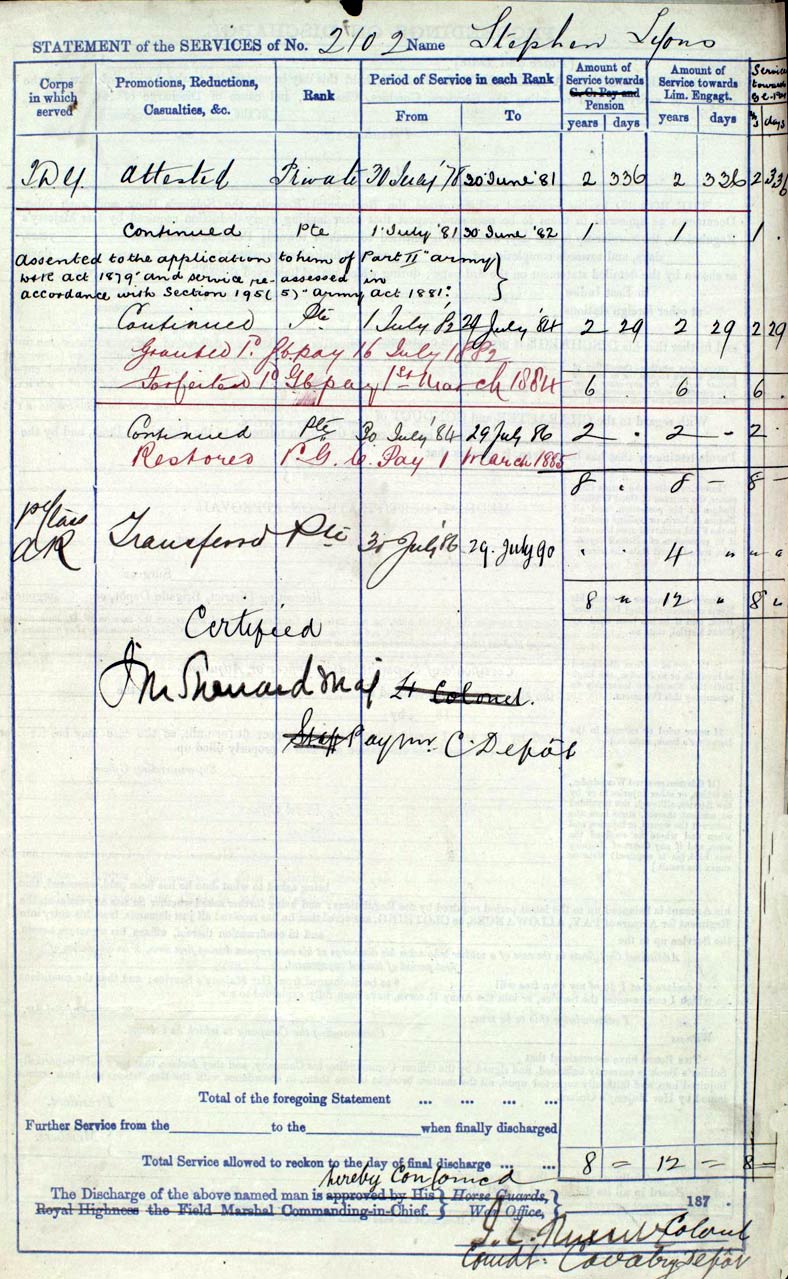 STATEMENT of the SERVICES of No. 2102 Name Stephen Lyons
Corps in which served
Promotions, Reductions, Casualties, &c.
Rank
Period of Service in each Rank
From To
Amount of Service towards G. C. Pay and Pension
years days
Amount of Service towards Lim. Engagt.
years days
Service towards G.C. Pay
days
Attested Private 30 '78 30 June '81 2 336 2 336 2 336
Continued Pte 1 July '81 30 June '82 1 · 1 · 1 ·
Assented to the application to him of Part II "Army
act 1879" and service re-assessed in
accordance with Section 195(5) "Army Act 1881".
Continued Pte 1 July '82 29 July '84 2 29 2 29 2 29
Granted 1d. G C pay 16 July 1882
Forfeited 1d G C pay 1st March 1884 6 · 6 · 6 ·
Continued Pte 30 July '84 29 July '86 2 · 2 - 2 ·
Restored 1d. G. C. Pay 1 March 1885
8 · 8 - 8 -
1st Class
A R Transferred Pte 30 July '86 29 July 90 · · 4 " " "
8 " 12 " 8 "
Certified
Maj Lt Colonel.
Staff Paymr. C. Depôt
Total of the foregoing Statement ... ... ... ...
Further Service from the to the when finally discharged
Total Service allowed to reckon to the day of final discharge ... ... 8 = 12 = 8 =
hereby Confirmed
The Discharge of the above named man is approved by His } Horse Guards, }
Royal Highness the Field Marshal Commanding-in-Chief. } War Office, } 187 .
Colonel
Comdt. Cavalry Depôt